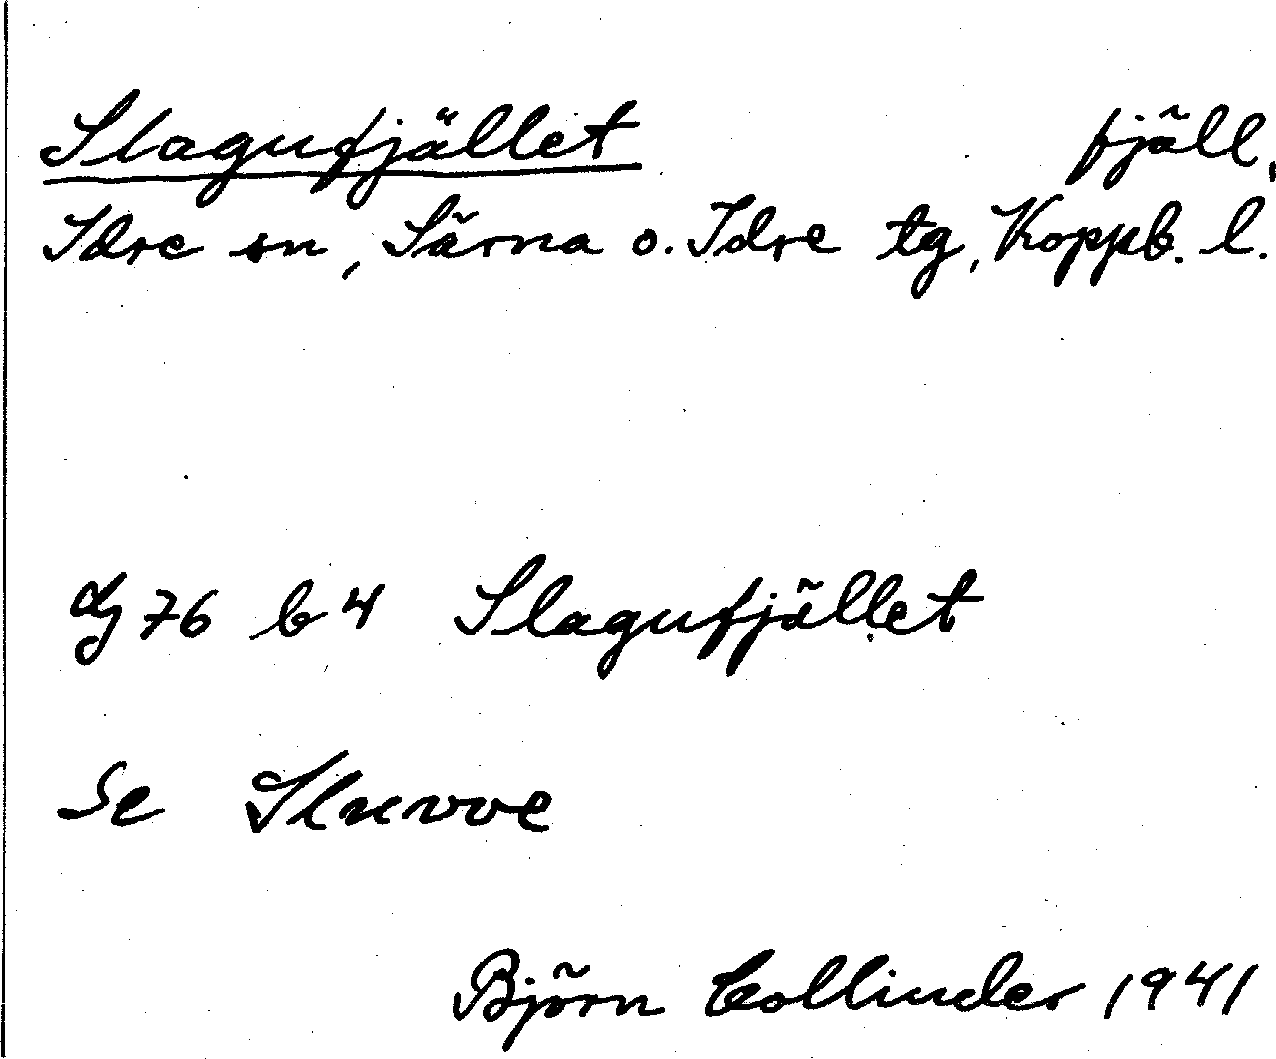 Slagufjället fjäll,
Idre sn, Särna o. Idre tg, Koppb. l.
dg 76 b 4 Slagufjället
Se Sluvvoe
Björn Collinder 1941